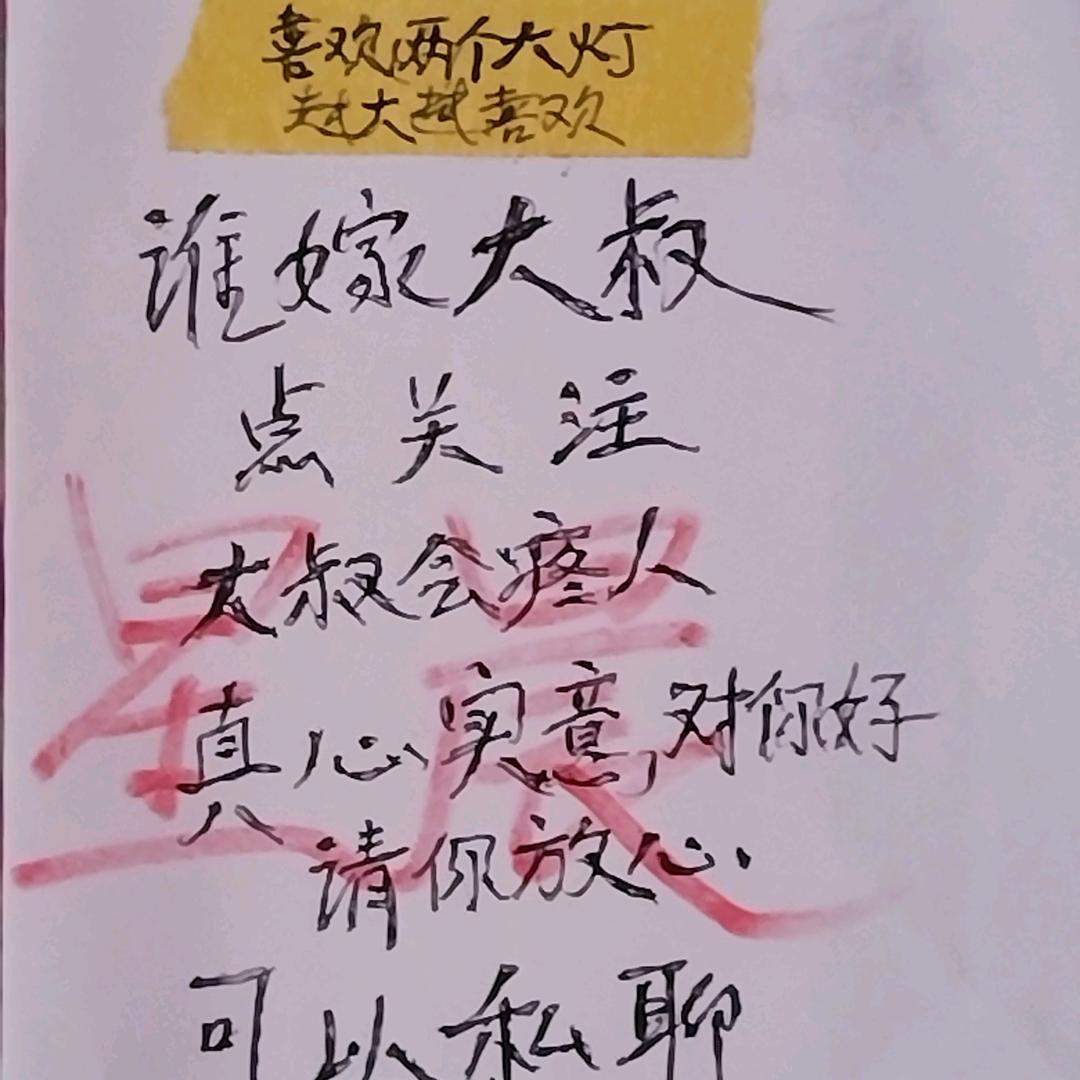 喜欢两个大灯
越大越喜欢
谁嫁大叔
点关注
大叔会疼人
真心实意,对你好
请你放心.
可以私聊
星辰